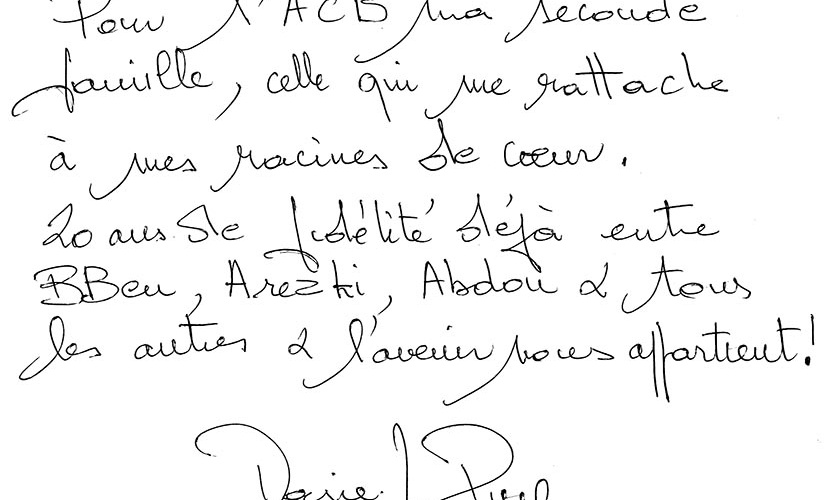 Pour l'ACB ma seconde
famille, celle qui me rattache
à mes racines de cœur.
20 ans de fidélité déjà entre
BBen, Arezki, Abdou & tous
les autres & l'avenir nous appartient!